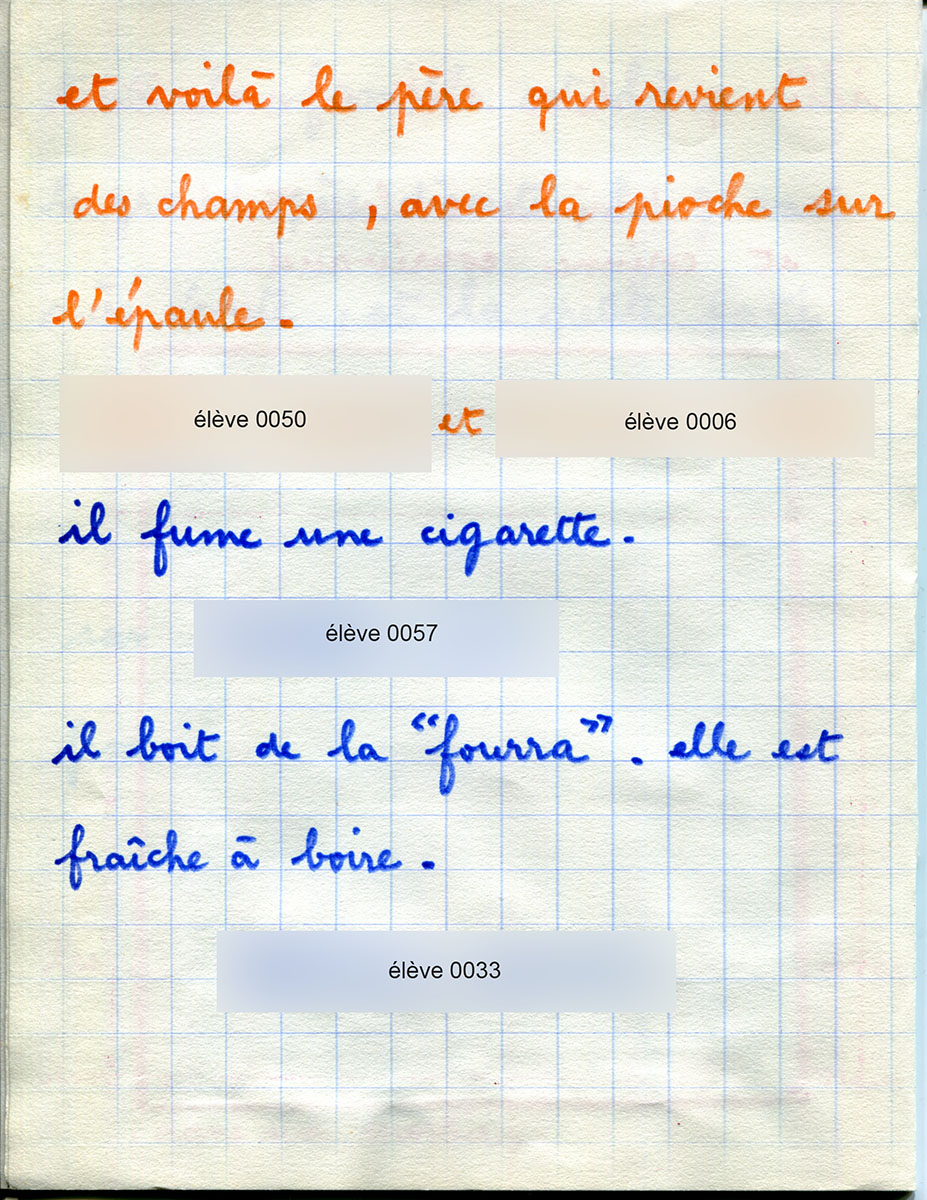 et voilà le père qui revient
des champs, avec la pioche sur
l'épaule.
élève 0050 et élève 0006
il fume une cigarette.
élève 0057
il boit de la "fourra". elle est
fraîche à boire.
élève 0033